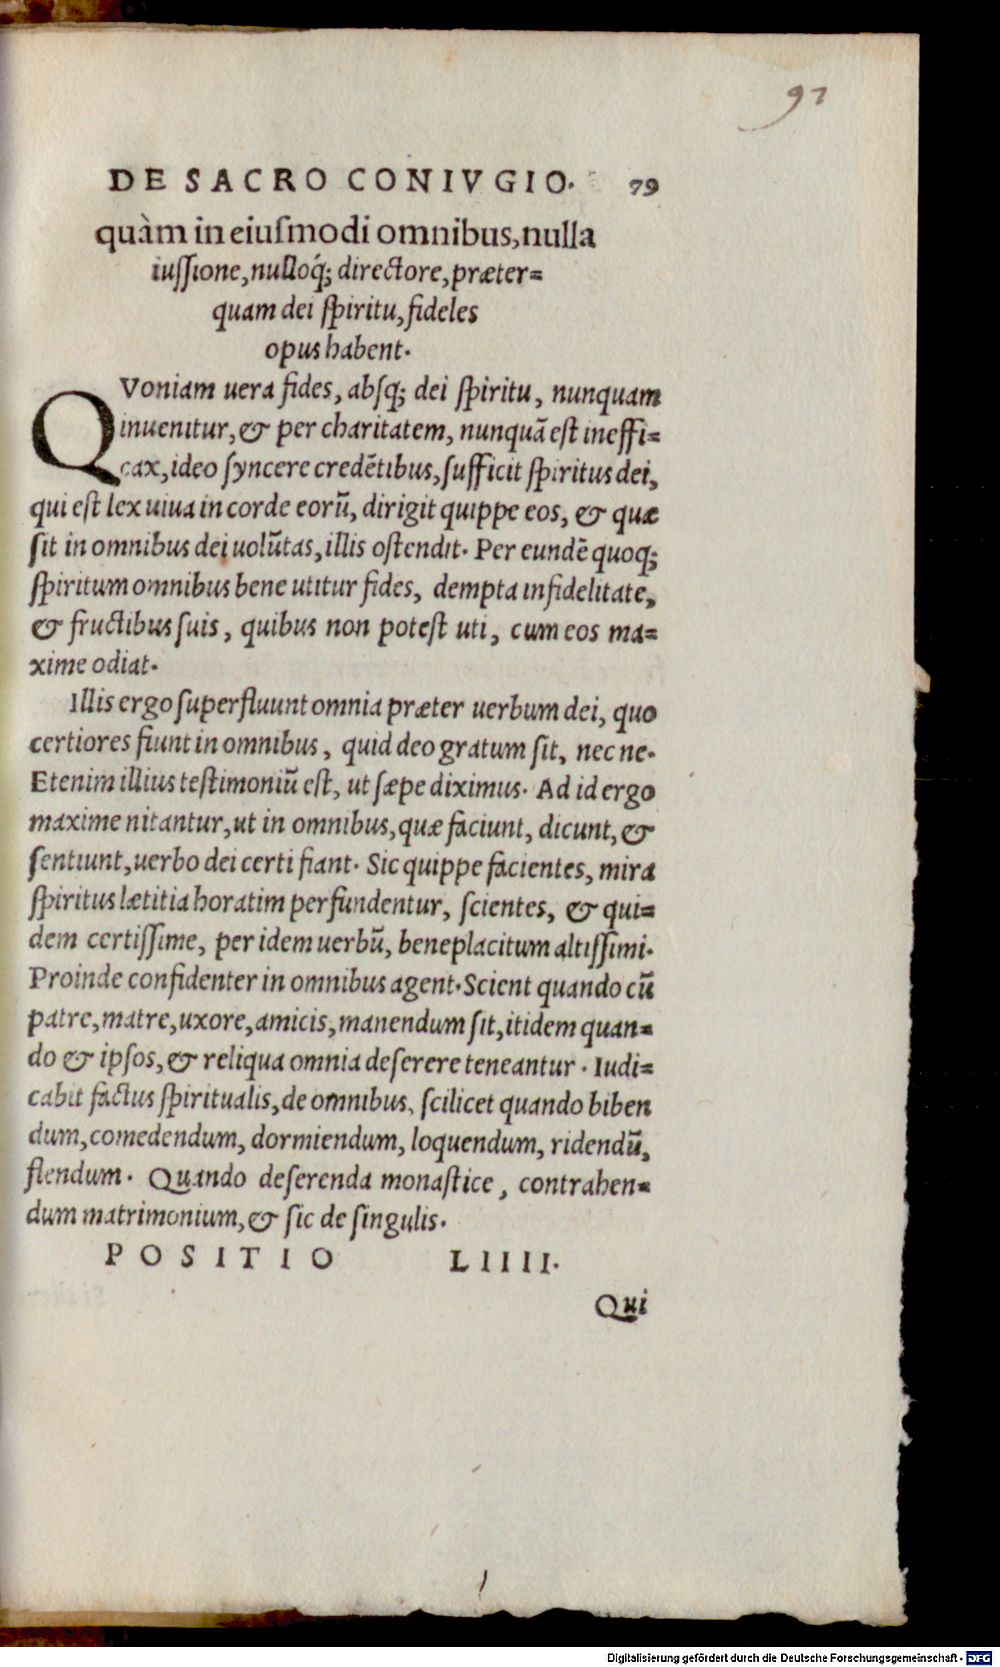 92
DE SACRO CONIVGIO. 79
quàm in eiuſmodi omnibus, nulla
iuſſione, nulloq́; directore, præter=
quam dei ſpiritu, fideles
opus habent.
QVoniam uera fides, abſq; dei ſpiritu, nunquam
inuenitur, & per charitatem, nunquã eſt ineffi=
cax, ideo ſyncere credẽtibus, ſufficit ſpiritus dei,
qui eſt lex uiua in corde eorũ, dirigit quippe eos, & quæ
ſit in omnibus dei uolũtas, illis oſtendit. Per eundẽ quoq;
ſpiritum omnibus bene utitur fides, dempta infidelitate,
& fructibus ſuis, quibus non poteſt uti, cum eos ma=
xime odiat.
Illis ergo ſuperfluunt omnia præter uerbum dei, quo
certiores fiunt in omnibus, quid deo gratum ſit, nec ne.
Etenim illius teſtimoniũ eſt, ut ſæpe diximus. Ad id ergo
maxime nitantur, ut in omnibus, quæ faciunt, dicunt, &
ſentiunt, uerbo dei certi fiant. Sic quippe facientes, mira
ſpiritus lætitia horatim perfundentur, ſcientes, & qui=
dem certiſſime, per idem uerbũ, beneplacitum altiſſimi.
Proinde confidenter in omnibus agent. Scient quando cũ
patre, matre, uxore, amicis, manendum ſit, itidem quan=
do & ipſos, & reliqua omnia deſerere teneantur. Iudi=
cabit factus ſpiritualis, de omnibus, ſcilicet quando biben
dum, comedendum, dormiendum, loquendum, ridendũ,
flendum. Quando deſerenda monaſtice, contrahen=
dum matrimonium, & ſic de ſingulis.
POSITIO LIIII.
Qui
Digitalisierung gefördert durch die Deutsche Forschungsgemeinschaft - DFG